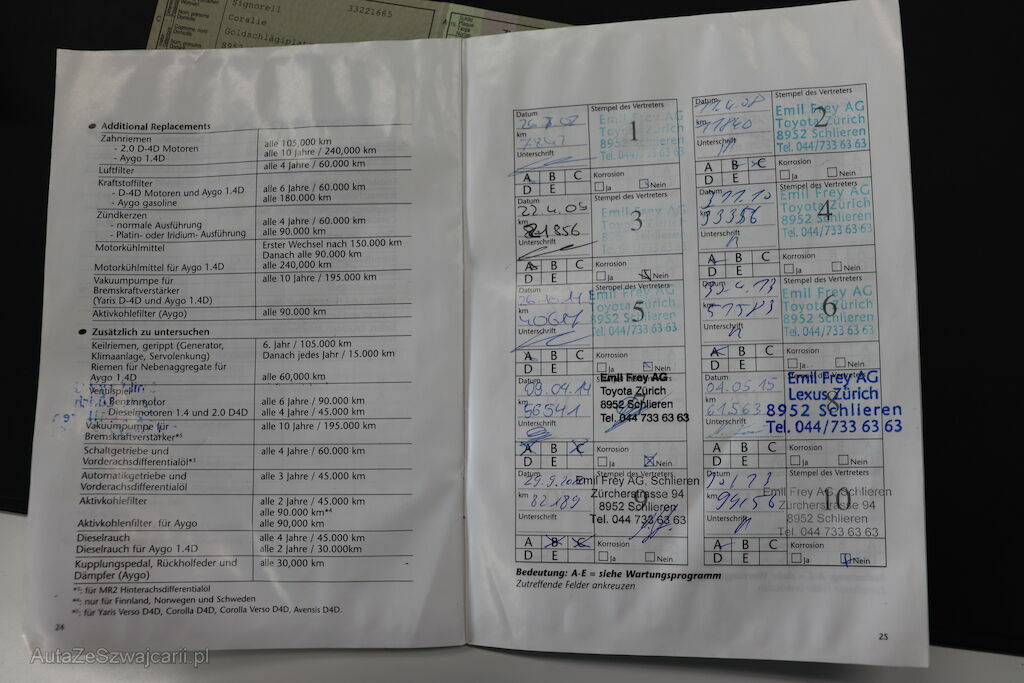 Signorell
33221665
Coralie
Additional Replacements
Zahnriemen
- 2.0 D-4D Motoren
- Aygo 1.4D
alle 105,000 km
alle 10 Jahre / 240,000 km
Luftfilter
alle 4 Jahre / 60.000 km
Kraftstoffilter
- D-4D Motoren und Aygo 1.4D
- Aygo gasoline
alle 6 Jahre / 60.000 km
alle 180.000 km
Zündkerzen
- normale Ausführung
- Platin- oder Iridium- Ausführung
alle 4 Jahre / 60.000 km
alle 90.000 km
Motorkühlmittel
Erster Wechsel nach 150.000 km
Danach alle 90.000 km
Motorkühlmittel für Aygo 1.4D
alle 240,000 km
Vakuumpumpe für
Bremskraftverstärker
(Yaris D-4D und Aygo 1.4D)
alle 10 Jahre / 195.000 km
Aktivkohlefilter (Aygo)
alle 90.000 km
Zusätzlich zu untersuchen
Keilriemen, gerippt (Generator,
Klimaanlage, Servolenkung)
6. Jahr / 105.000 km
Danach jedes Jahr / 15.000 km
Riemen für Nebenaggregate für
Aygo 1.4D
alle 60,000 km
Ventilspiel
- Benzinmotor
- Dieselmotoren 1.4 und 2.0 D4D
alle 6 Jahre / 90.000 km
alle 4 Jahre / 45.000 km
Vakuumpumpe für
Bremskraftverstärker*5
alle 10 Jahre / 195.000 km
Schaltgetriebe und
Vorderachsdifferentialöl*3
alle 4 Jahre / 60.000 km
Automatikgetriebe und
Vorderachsdifferentialöl
alle 3 Jahre / 45.000 km
Aktivkohlefilter
alle 2 Jahre / 45.000 km
alle 90.000 km*4
Aktivkohlenfilter für Aygo
alle 90,000 km
Dieselrauch
alle 4 Jahre / 45.000 km
Dieselrauch für Aygo 1.4D
alle 2 Jahre / 30.000km
Kupplungspedal, Rückholfeder und
Dämpfer (Aygo)
alle 30,000 km
-
*3: für MR2 Hinterachsdifferentialöl
*4: nur für Finnland, Norwegen und Schweden
*5: für Yaris Verso D4D, Corolla D4D, Corolla Verso D4D, Avensis D4D.
24
Datum
Stempel des Vertreters
km
Unterschrift
1
Emil Frey AG
Toyota Zürich
8952 Schlieren
Tel. 044/733 63 63
A B C
D E
Korrosion
Ja Nein
Datum
Stempel des Vertreters
km 11840
2
Emil Frey AG
Toyota Zürich
8952 Schlieren
Tel. 044/733 63 63
Unterschrift
A B C
D E
Korrosion
Ja Nein
Datum
22.4.09
km
21856
Unterschrift
Stempel des Vertreters
3
Emil Frey AG
Toyota Zürich
8952 Schlieren
Tel. 044/733 63 63
A B C
D E
Korrosion
Ja Nein
km 33356
Unterschrift
Stempel des Vertreters
4
Emil Frey AG
Toyota Zürich
8952 Schlieren
Tel. 044/733 63 63
A B C
D E
Korrosion
Ja Nein
Datum
km
Unterschrift
Stempel des Vertreters
5
Emil Frey AG
Toyota Zürich
8952 Schlieren
Tel. 044/733 63 63
A B C
D E
Korrosion
Ja Nein
Datum
km 51583
Unterschrift
Stempel des Vertreters
6
Emil Frey AG
Toyota Zürich
8952 Schlieren
Tel. 044/733 63 63
A B C
D E
Korrosion
Ja Nein
Datum
09.04.14
km
56541
Emil Frey AG
Toyota Zürich
8952 Schlieren
Tel. 044 733 63 63
A B C
D E
Korrosion
Ja Nein
Datum
04.05.15
km 61.563
8
Emil Frey AG
Lexus Zürich
8952 Schlieren
Tel. 044/733 63 63
A B C
D E
Korrosion
Ja Nein
Datum
km 82189
Unterschrift
Stempel des Vertreters
9
Emil Frey AG, Schlieren
Zürcherstrasse 94
8952 Schlieren
Tel. 044 733 63 63
A B C
D E
Korrosion
Ja Nein
Datum
km 99156
Unterschrift
Stempel des Vertreters
10
Emil Frey AG, Schlieren
Zürcherstrasse 94
8952 Schlieren
Tel. 044 733 63 63
A B C
D E
Korrosion
Ja Nein
Bedeutung: A-E = siehe Wartungsprogramm
Zutreffende Felder ankreuzen
25
AutaZeSzwajcarii.pl